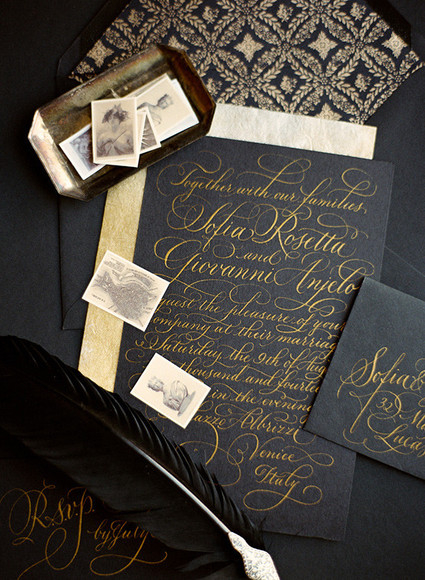 Together with our families,
Sofia Rosetta
and
Giovanni Anjelo
quest the pleasure of your
company at their marria
Saturday, the 9th of
thousand and fourte
in the evening
Albrizzi
Venice
Italy
Sofia &
Lucia
Rsvp
by July